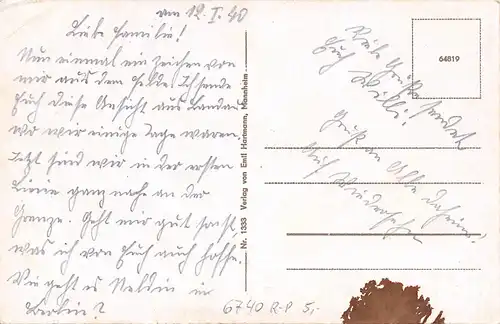 am 12.I.40
Liebe Familie!
Nun einmal ein Zeichen von
mir aus dem Felde. Ich sende
Euch diese Ansicht aus Landau
wo wir einige Tage waren.
Jetzt sind wir in der ersten
Linie ganz nahe an der
Grenze. Geht mir gut sonst,
was ich von Euch auch hoffe.
Wie geht es in
Berlin?
Nr. 1333 Verlag von Emil Hartmann, Mannheim
64819
Viele Grüße sendet
Euch Willi.
Gruß an Alle daheim.
Auf Wiedersehn
6740 R-P 5,-